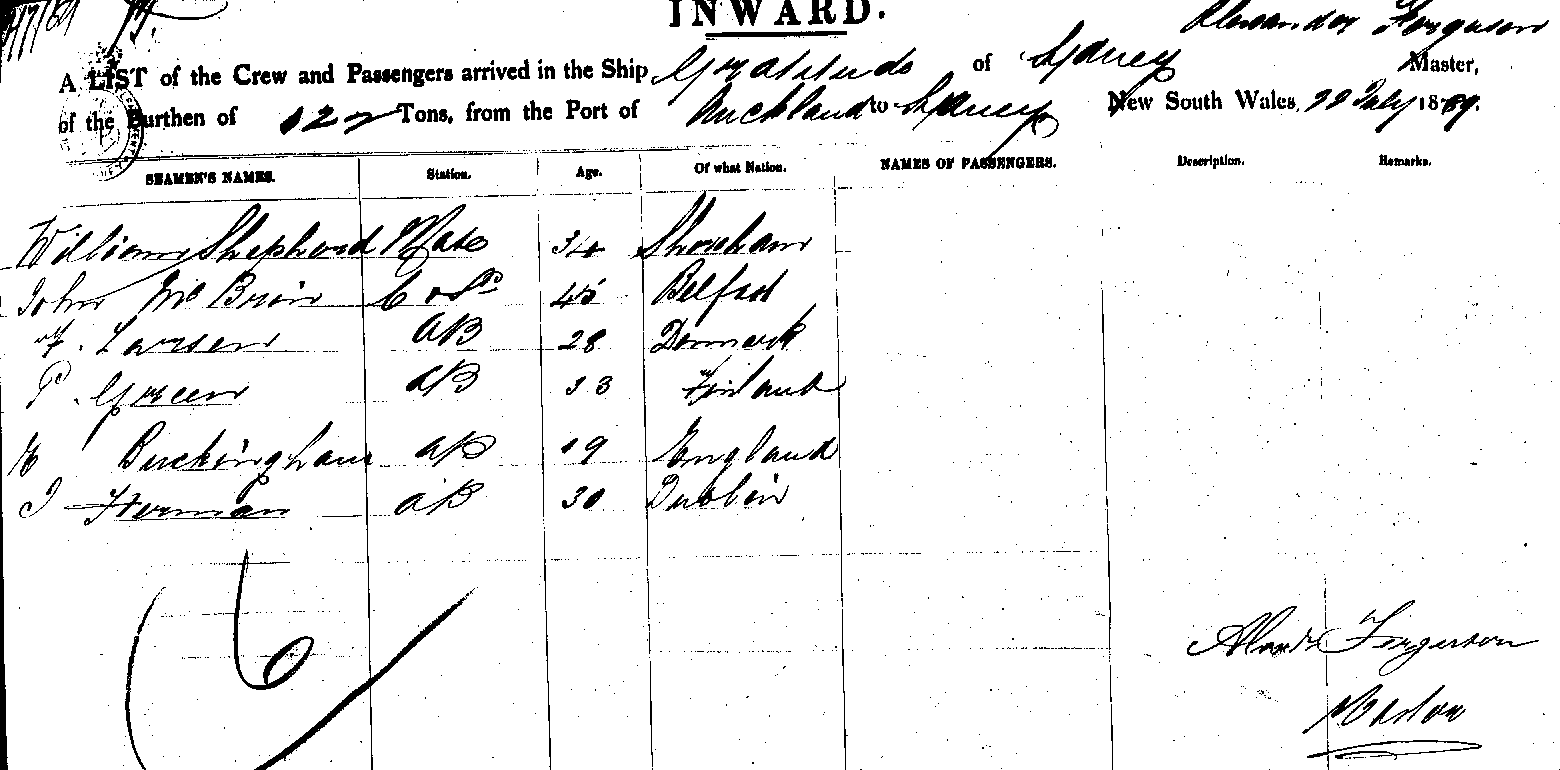 INWARD.
Alexander Ferguson
A LIST of the Crew and Passengers arrived in the Ship Gratitude of Sydney Master,
of the Burthen of 127 Tons, from the Port of Auckland to Sydney New South Wales, 22 July 1869.
SEAMEN'S NAMES. Station. Age. Of what Nation. NAMES OF PASSENGERS. Description. Remarks.
William Shepherd Mate 34 Shoreham
John Mc Brien 45 Belfast
F. Larsen AB 28 Denmark
P. Green AB 33 Finland
Buckingham AB 19 England
Herman AB 30 Dublin
6
Alexdr Ferguson
Master